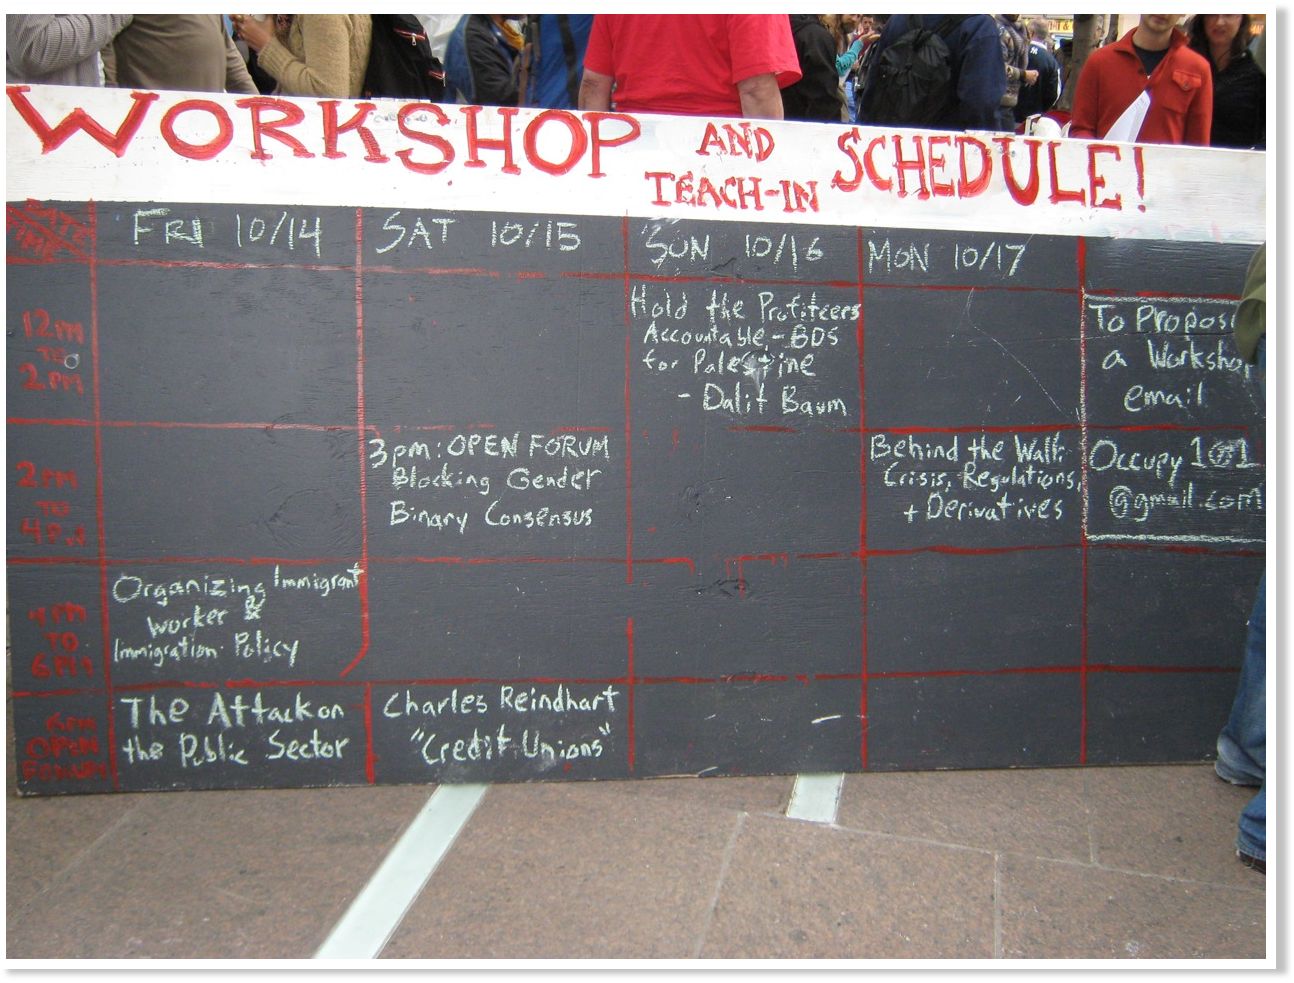 WORKSHOP AND TEACH-IN SCHEDULE!
DATE
TIME
FRI 10/14
SAT 10/15
SUN 10/16
MON 10/17
12PM
TO
2PM
Hold the Profiteers
Accountable - BDS
for Palestine
- Dalit Baum
To Propose
a Workshop
email
2PM
TO
4PM
3pm: OPEN FORUM
Blocking Gender
Binary Consensus
Behind the Wall:
Crisis, Regulations,
+ Derivatives
Occupy 101
@gmail.com
4PM
TO
6PM
Organizing Immigrant
Worker &
Immigration Policy
6PM
OPEN
FORUM
The Attack on
the Public Sector
Charles Reindhart
"Credit Unions"